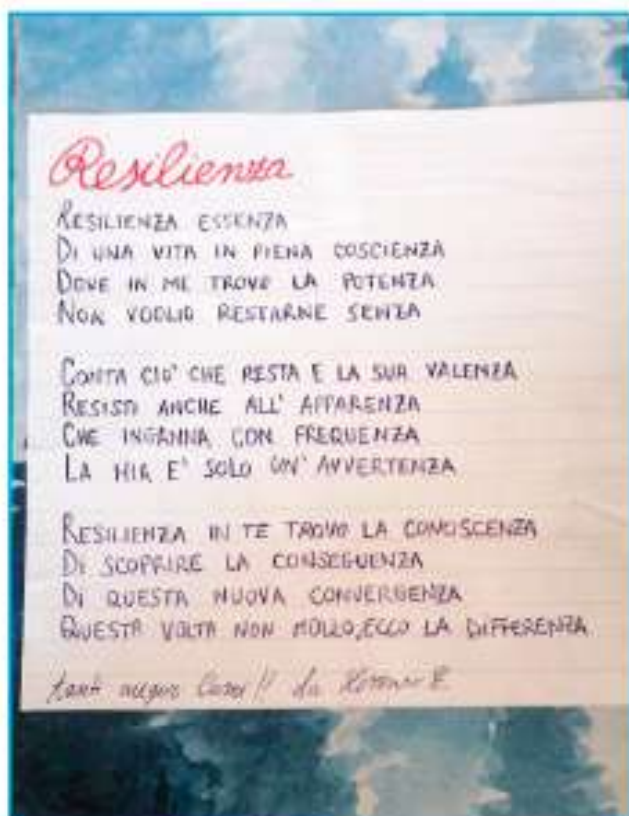 Resilienza
RESILIENZA ESSENZA
DI UNA VITA IN PIENA COSCIENZA
DOVE IN ME TROVO LA POTENZA
NON VOGLIO RESTARNE SENZA
CONTA CIO' CHE RESTA E LA SUA VALENZA
RESISTI ANCHE ALL' APPARENZA
CHE INGANNA CON FREQUENZA
LA MIA E' SOLO UN' AVVERTENZA
RESILIENZA IN TE TROVO LA CONOSCENZA
DI SCOPRIRE LA CONSEGUENZA
DI QUESTA NUOVA CONVERGENZA
QUESTA VOLTA NON MOLLO, ECCO LA DIFFERENZA
tanti auguri !! da